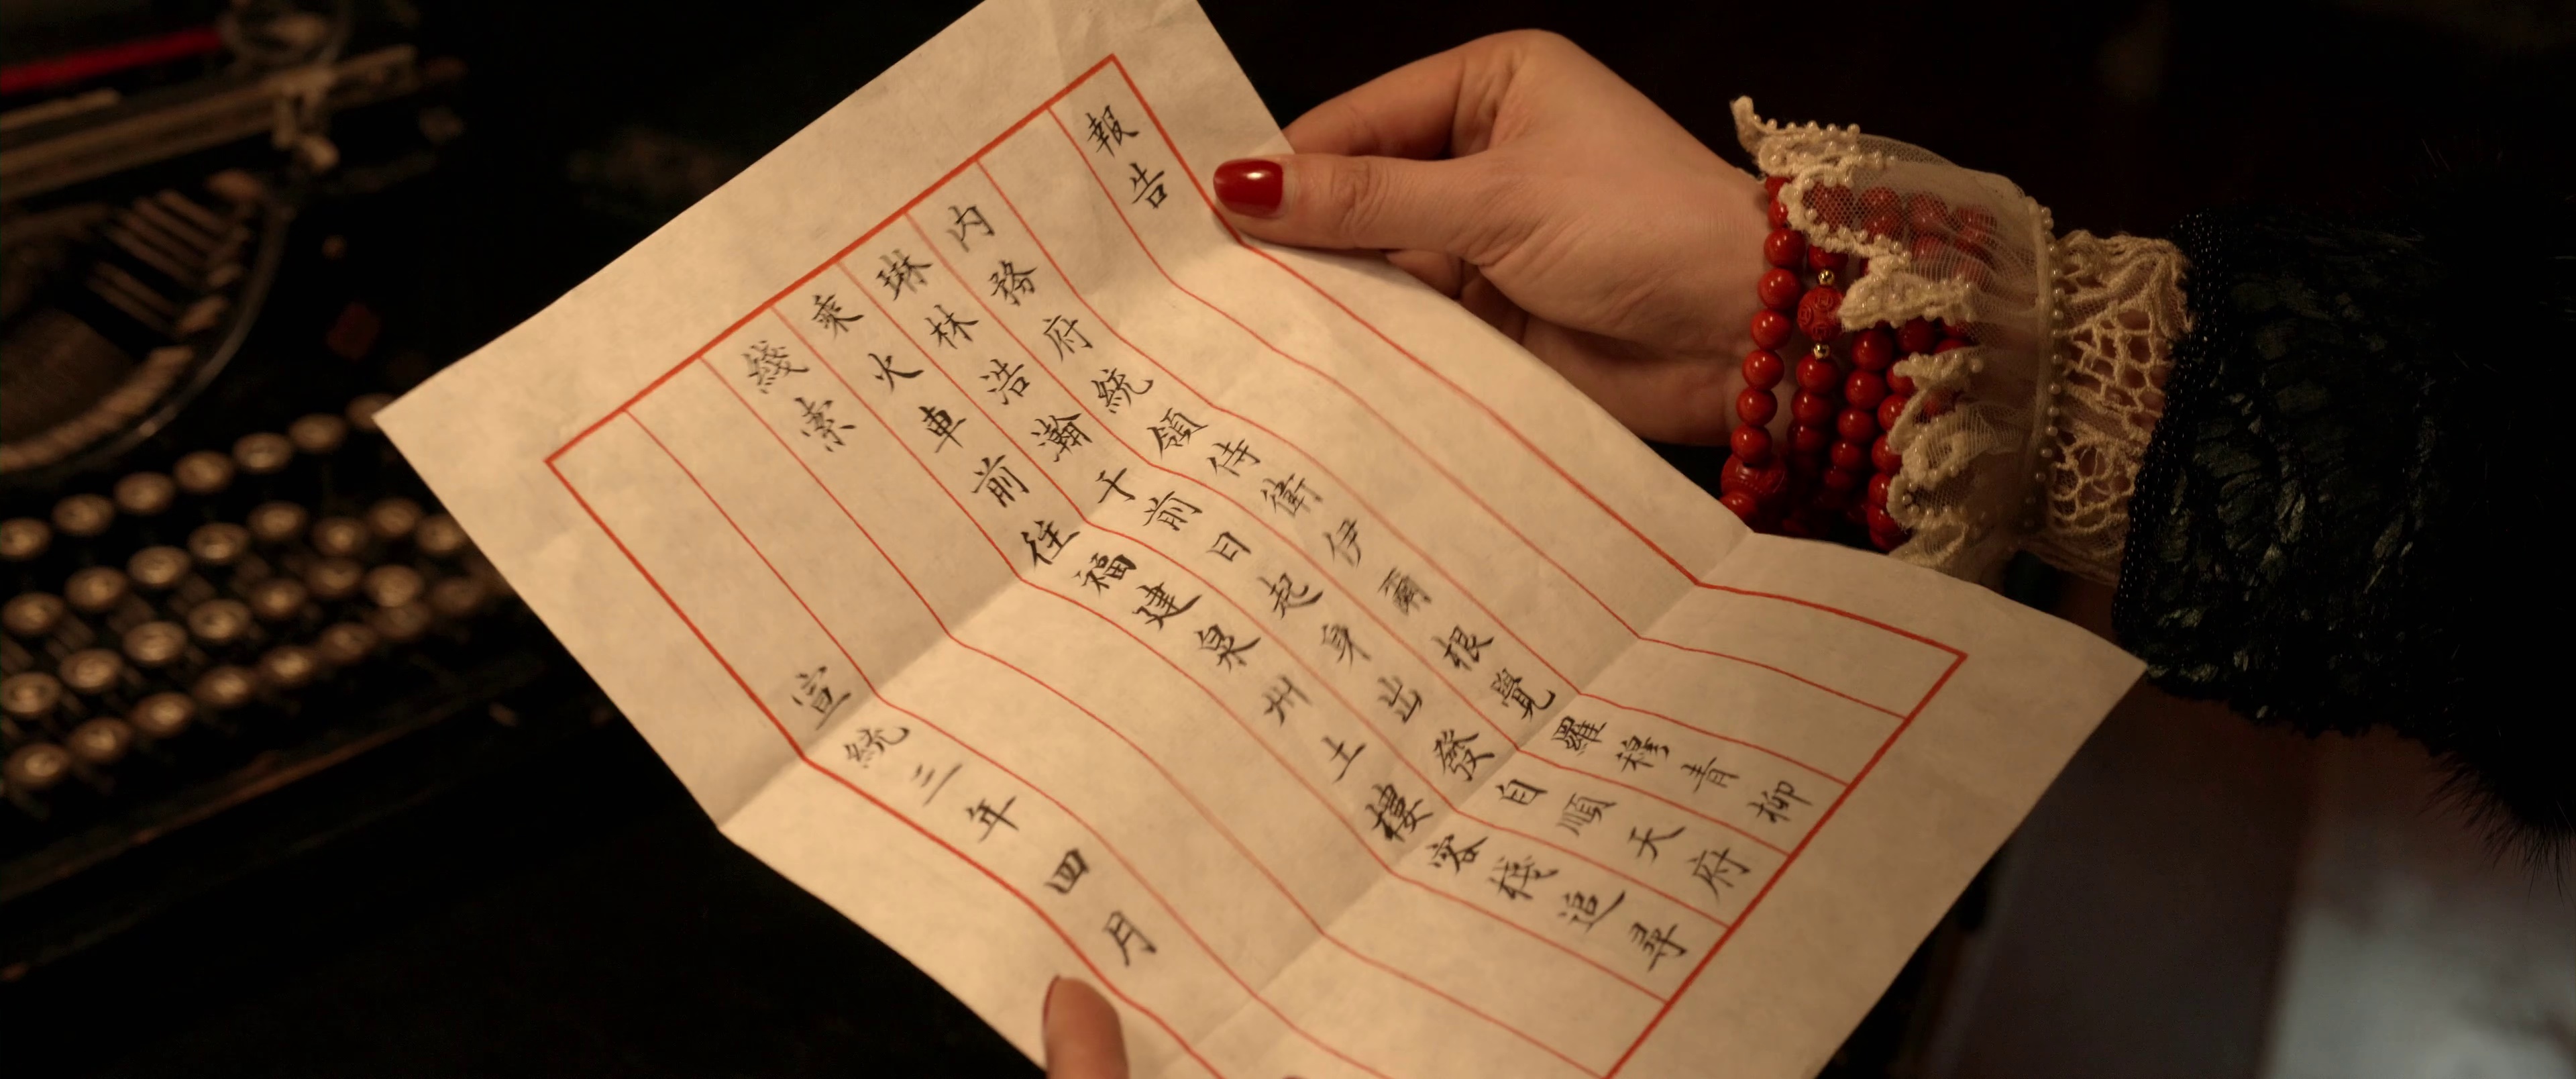 報告
内務府統領侍衛伊爾根覺羅穆青柳
琳林浩瀚于前日起身出發自順天府
乘火車前往福建泉州土樓客棧追尋
綫索
宣統三年四月